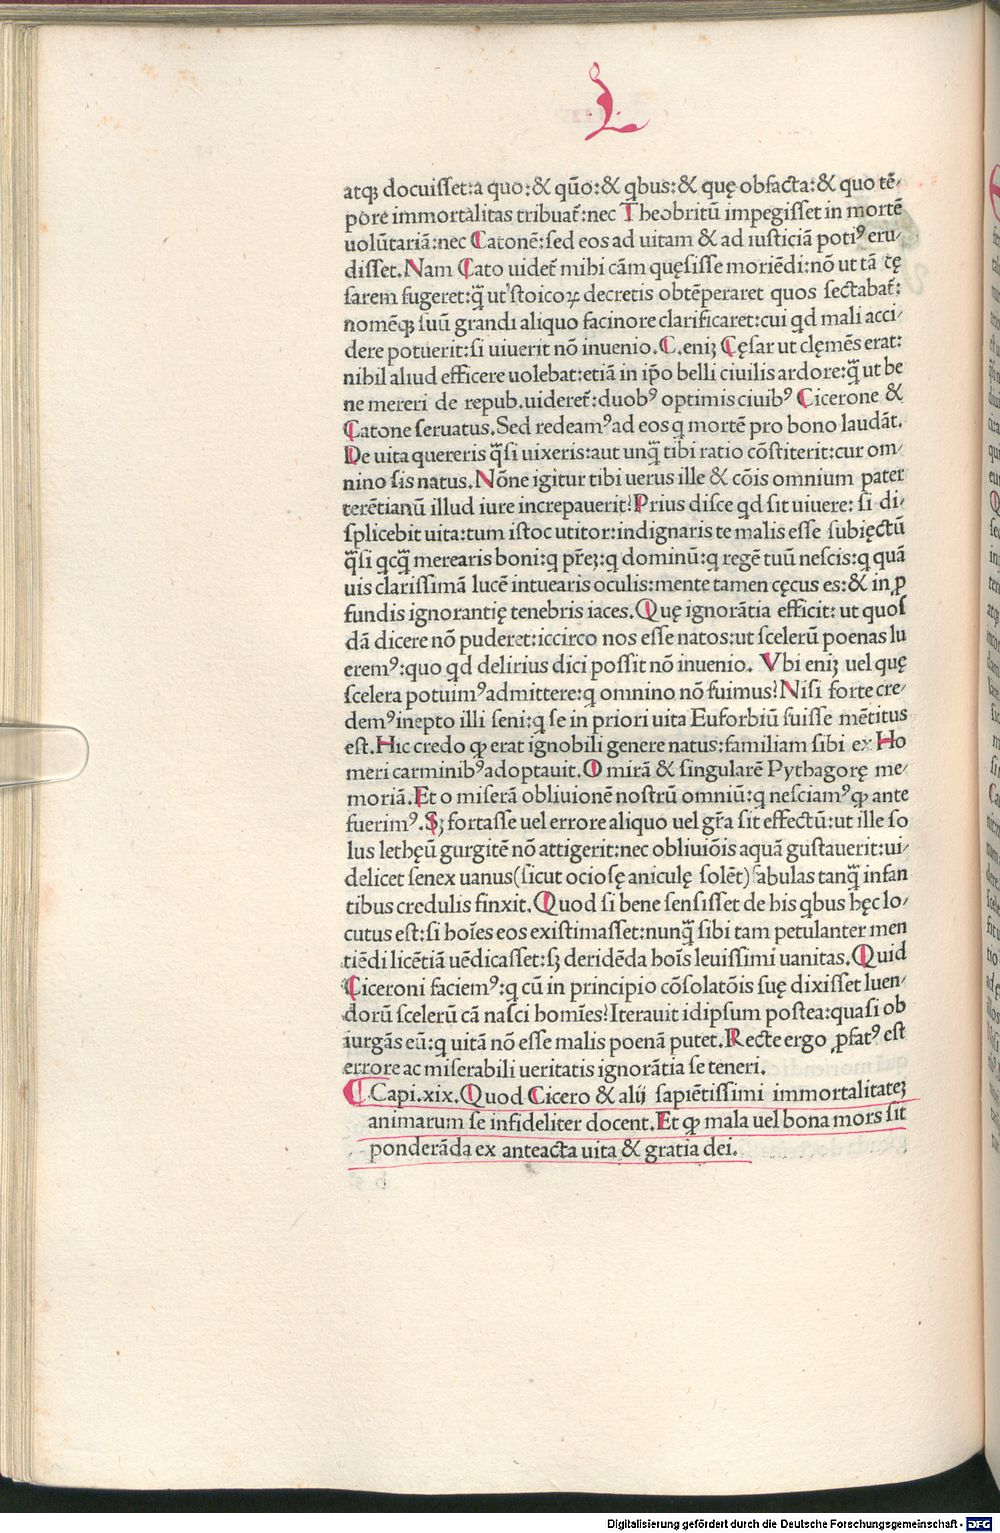 L
atqꝫ docuiſſet:a quo:& qūo:& qbus:& quę obfacta:& quo tē⸗
pore immortalitas tribuat᷑:nec Theobritū impegiſſet in mortē
uolūtariā:nec Catonē:ſed eos ad uitam & ad iuſticiā potiꝰ eru⸗
diſſet.Nam Cato uidet᷑ mihi cām quęſiſſe moriēdi:nō ut tā cę
ſarem fugeret:q̃ ut ſtoicoꝝ decretis obtēperaret quos ſectabat᷑:
nomēqꝫ ſuū grandi aliquo facinore clarificaret:cui qd mali acci⸗
dere potuerit:ſi uiuerit nō inuenio.C.eniꝫ Cęſar ut clęmēs erat:
nihil aliud efficere uolebat:etiā in ip̄o belli ciuilis ardore:q̃ ut be
ne mereri de repub.uideret᷑:duobꝰ optimis ciuibꝰ Cicerone &
Catone ſeruatus.Sed redeamꝰ ad eos q mortē pro bono laudāt.
De uita quereris q̃ſi uixeris:aut unq̃ tibi ratio cōſtiterit:cur om⸗
nino ſis natus.Nōne igitur tibi uerus ille & cōis omnium pater
terētianū illud iure increpauerit?Prius diſce qd ſit uiuere: ſi di⸗
ſplicebit uita:tum iſtoc utitor:indignaris te malis eſſe ſubięctū
q̃ſi qcq̃ merearis boni:q pr̄eꝫ:q dominū:q regē tuū neſcis:q quā
uis clariſſimā lucē intuearis oculis:mente tamen cęcus es:& in ꝓ
fundis ignorantię tenebris iaces.Quę ignorātia efficit: ut quoſ
dā dicere nō puderet:iccirco nos eſſe natos:ut ſcelerū poenas lu
eremꝰ:quo qd delirius dici poſſit nō inuenio. Vbi eniꝫ uel quę
ſcelera potuimꝰ admittere:q omnino nō fuimus?Niſi forte cre⸗
demꝰ inepto illi ſeni:q ſe in priori uita Euforbiū fuiſſe mētitus
eſt.Hic credo ꝙ erat ignobili genere natus:familiam ſibi ex Ho
meri carminibꝰ adoptauit.O mirā & ſingularē Pythagorę me⸗
moriā.Et o miſerā obliuionē noſtrū omniū:q neſciamꝰ ꝙ ante
fuerimꝰ.Sꝫ fortaſſe uel errore aliquo uel gr̄a ſit effectū:ut ille ſo
lus lethęū gurgitē nō attigerit:nec obliuiōis aquā guſtauerit:ui⸗
delicet ſenex uanus(ſicut ocioſę aniculę ſolēt)fabulas tanq̃ infan
tibus credulis finxit.Quod ſi bene ſenſiſſet de his qbus hęc lo⸗
cutus eſt:ſi hoīes eos exiſtimaſſet:nunq̃ ſibi tam petulanter men
tiēdi licētiā uēdicaſſet:ſꝫ deridēda hoīs leuiſſimi uanitas.Quid
Ciceroni faciemꝰ:q cū in principio cōſolatōis ſuę dixiſſet luen⸗
dorū ſcelerū cā naſci homīes?Iterauit idipſum poſtea:quaſi ob
iurgās eū:q uitā nō eſſe malis poenā putet.Recte ergo ꝓfatꝰ eſt
errore ac miſerabili ueritatis ignorātia ſe teneri.
Capi.xix.Quod Cicero & alij ſapiētiſſimi immortalitateꝫ
animarum ſe infideliter docent.Et ꝙ mala uel bona mors ſit
ponderāda ex anteacta uita & gratia dei.
Digitalisierung gefördert durch die Deutsche Forschungsgemeinschaft - DFG